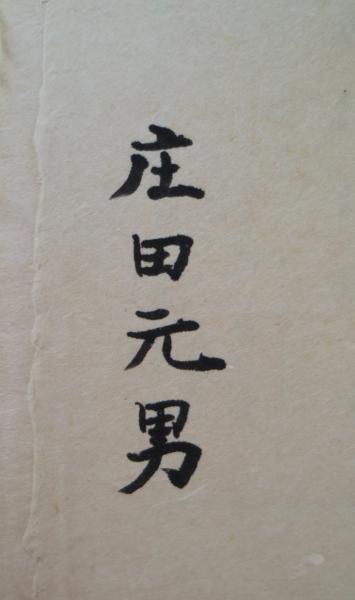 庄田元男